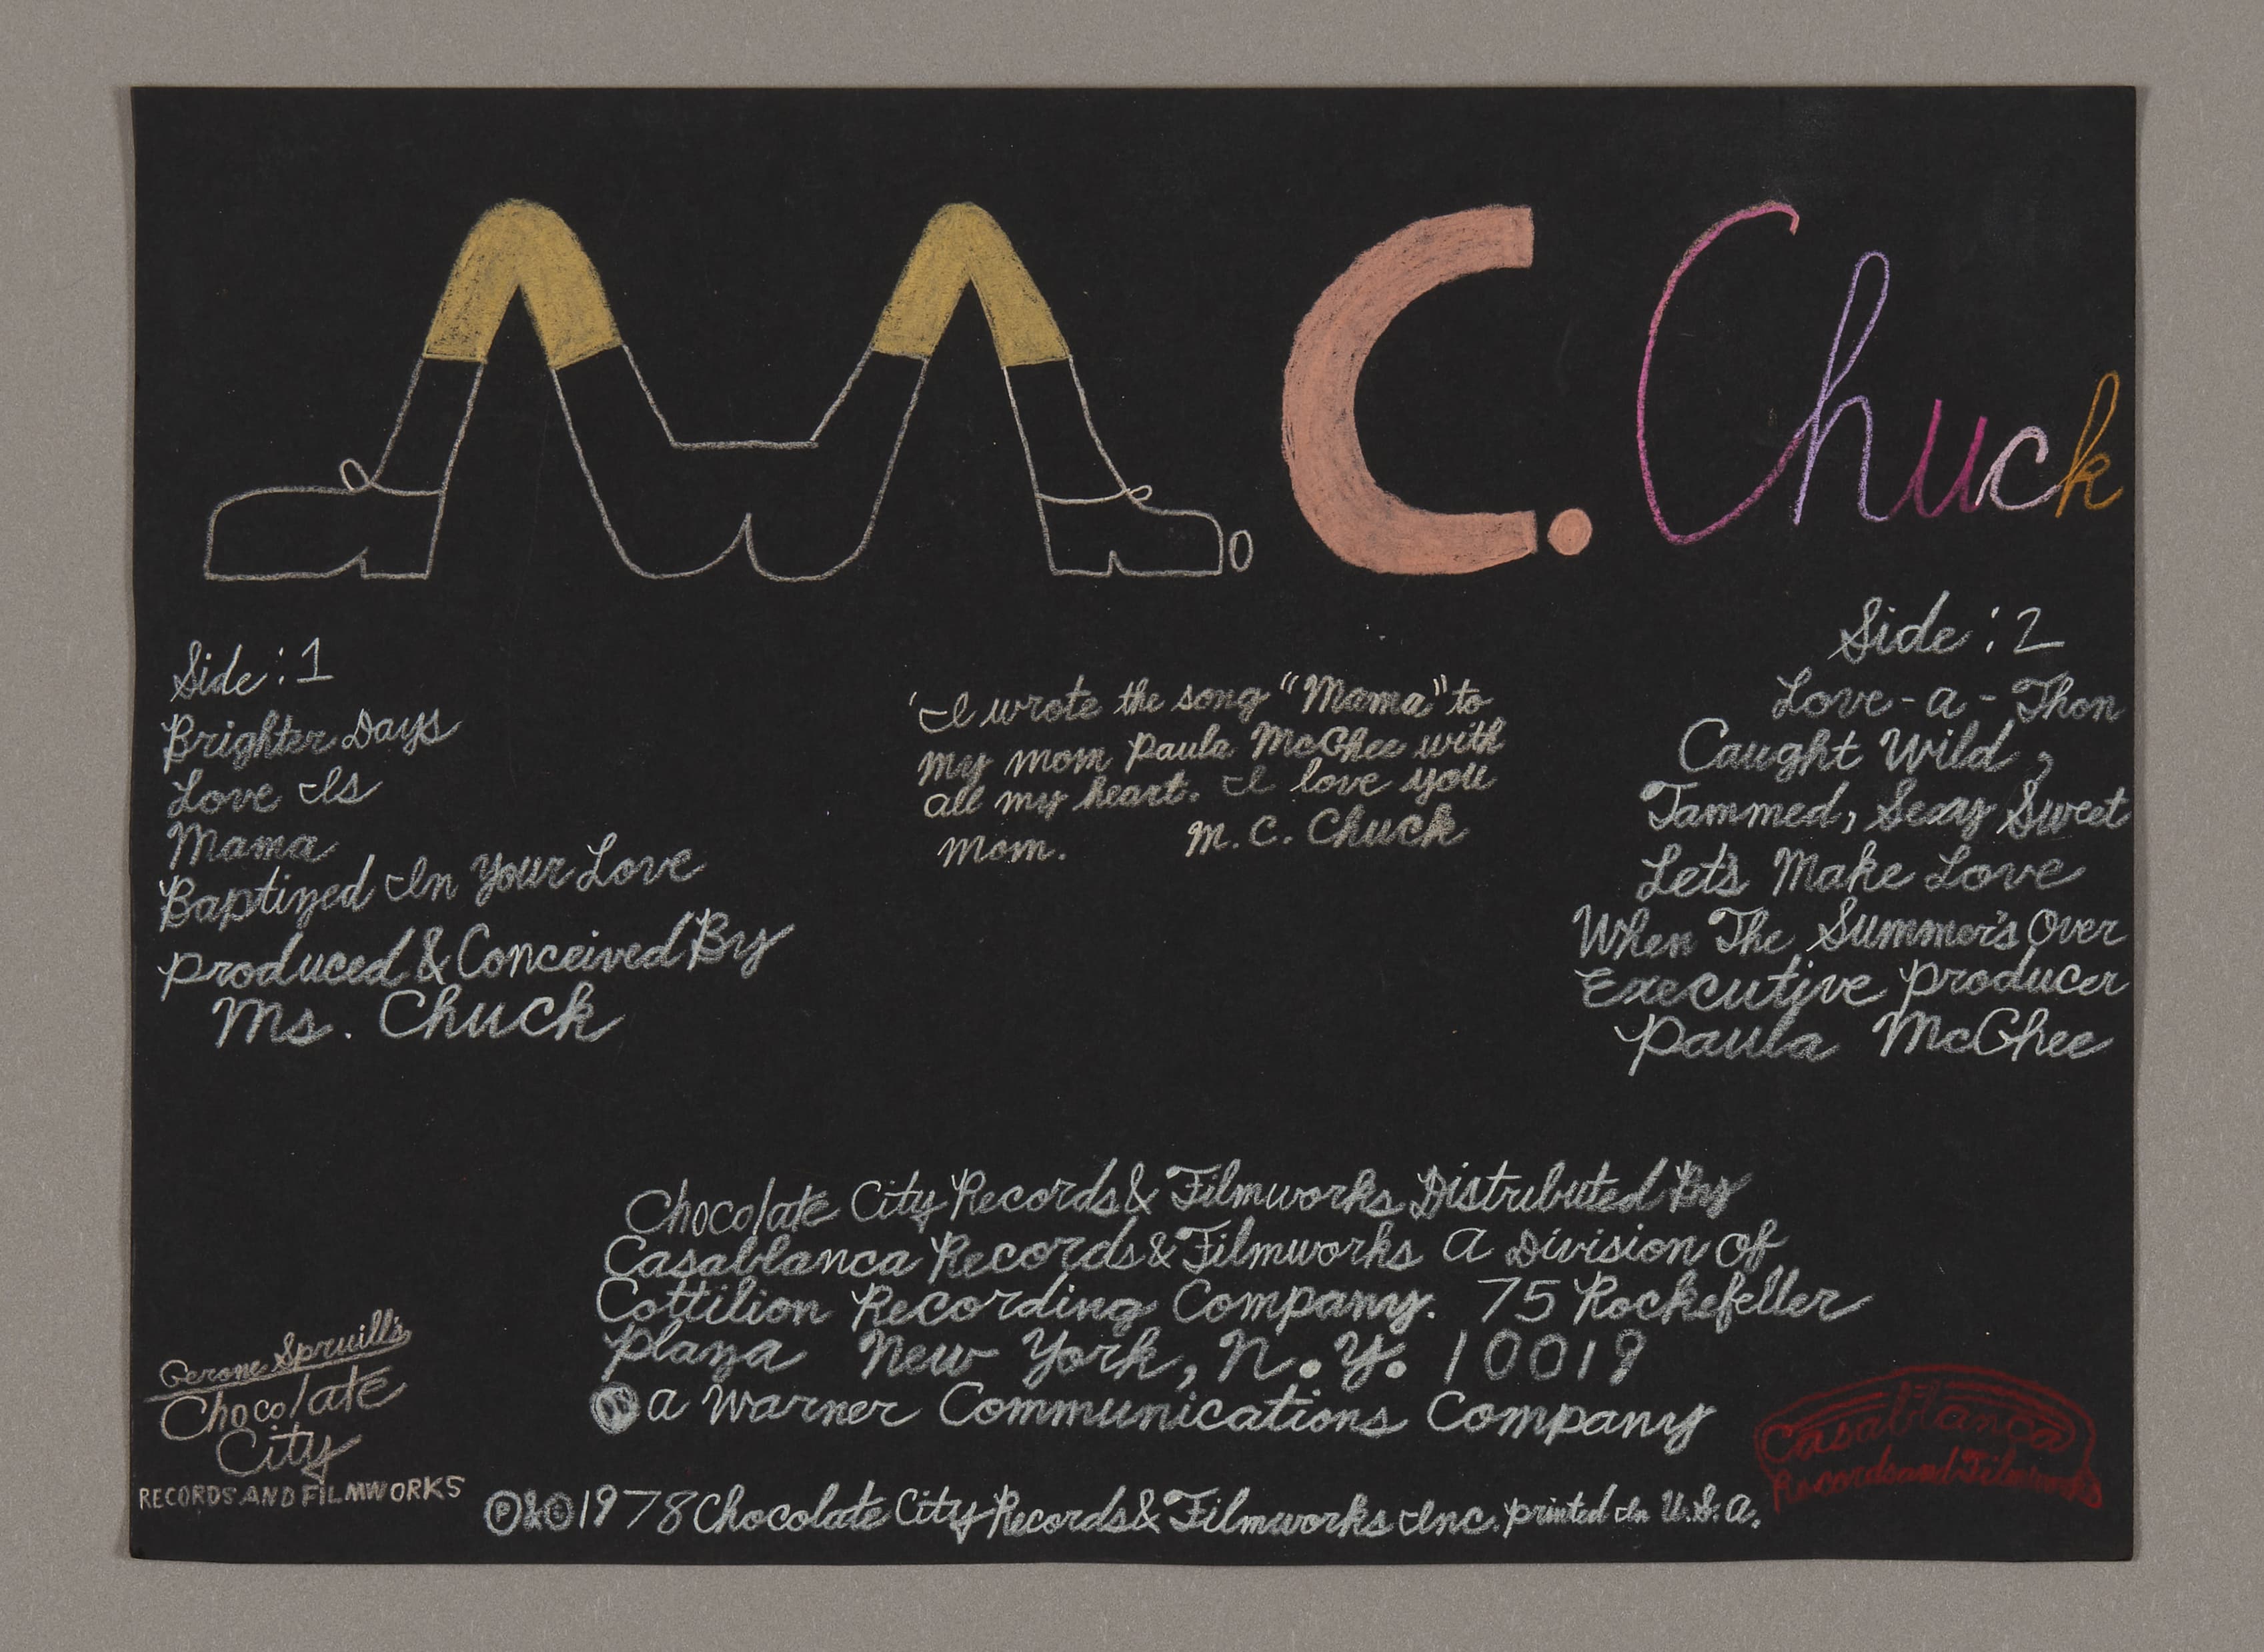 M. C. Chuck
Side : 1
Brighter Days
Love Is
Mama
Baptized In Your Love
Produced & Conceived By
Ms. Chuck
'I wrote the song "Mama" to
my mom Paula McGhee with
all my heart. I love you
Mom. M. C. Chuck
Side : 2
Love-a-Thon
Caught Wild,
Tammed, Sexy Sweet
Let's Make Love
When The Summer's Over
Executive Producer
Paula McGhee
Chocolate City Records & Filmworks Distributed By
Casablanca Records & Filmworks A Division Of
Cottilion Recording Company. 75 Rockefeller
Plaza New York, N.Y. 10019
a Warner Communications Company
Gerome Spruill's
Chocolate
City
RECORDS AND FILMWORKS
Ⓟ&© 1978 Chocolate City Records & Filmworks Inc. Printed In U.S.A.
Casablanca
Records and Filmworks